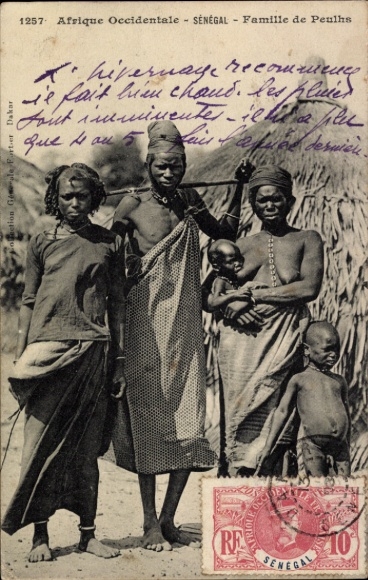 1257 Afrique Occidentale - SÉNÉGAL - Famille de Peulhs
L'hivernage recommence
il fait bien chaud. les pluies
sont imminentes - il n'y a plu
que 4 ou 5 fois l'année dernière
Collection Générale Fortier Dakar
RF SÉNÉGAL 10